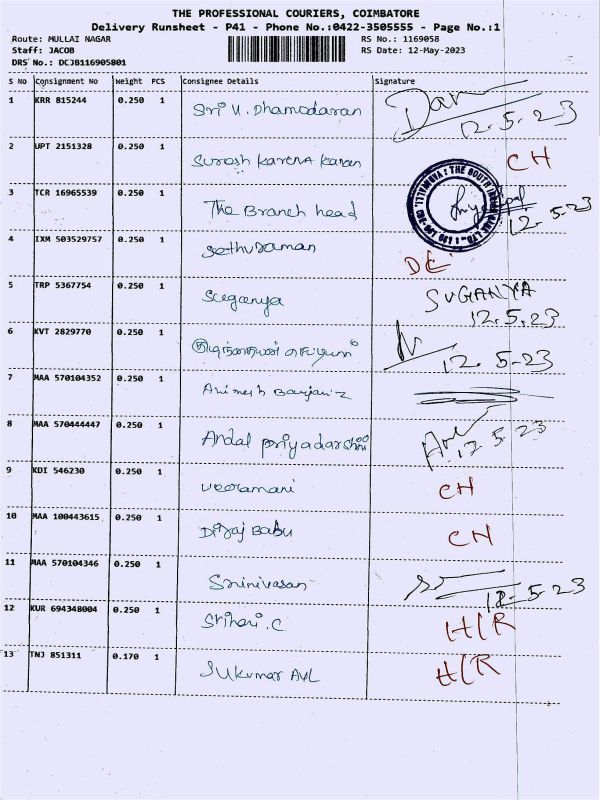 THE PROFESSIONAL COURIERS, COIMBATORE
Delivery Runsheet - P41 - Phone No.:0422-3505555 - Page No.:1
Route: MULLAI NAGAR RS No.: 1169058
Staff: JACOB RS Date: 12-May-2023
DRS No.: DCJB116905801
S No Consignment No Weight PCS Consignee Details Signature
1 KRR 815244 0.250 1 Sri V. Dhamodaran 12.5.23
2 UPT 2151328 0.250 1 Suresh Karuna Karan CH
3 TCR 16965539 0.250 1 The Branch head 12.5.23
4 IXM 503529757 0.250 1 Sethuraman
5 TRP 5367754 0.250 1 Suganya SUGANYA
12.5.23
6 KVT 2829770 0.250 1 12.5-23
7 MAA 570104352 0.250 1 Animesh
8 MAA 570444447 0.250 1 Andal Priyadarshini 12 5 23
9 KDI 546230 0.250 1 Veeramani CH
10 MAA 100443615 0.250 1 Babu CH
11 MAA 570104346 0.250 1 Srinivasan 12-5-23
12 KUR 694348004 0.250 1 Srihari.C H/R
13 TNJ 851311 0.170 1 Sukumar H/R